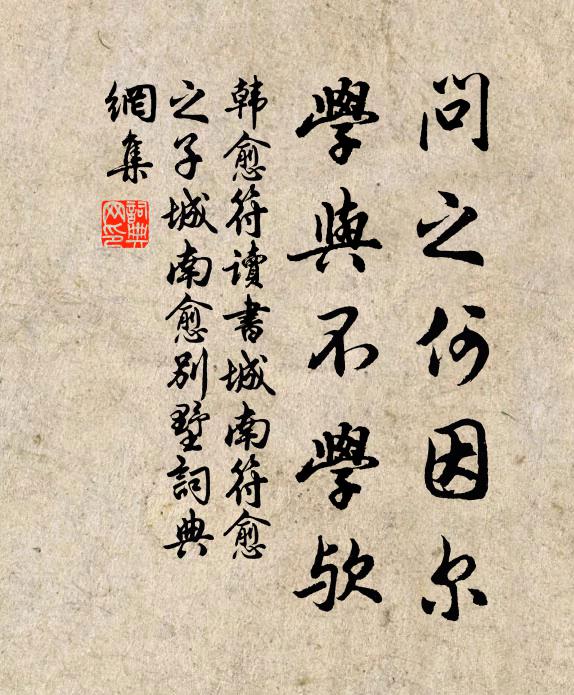 問之何因尔
學與不學欤
韩愈符讀書城南符愈
之子城南愈别墅詞典
網集
詞典
网印